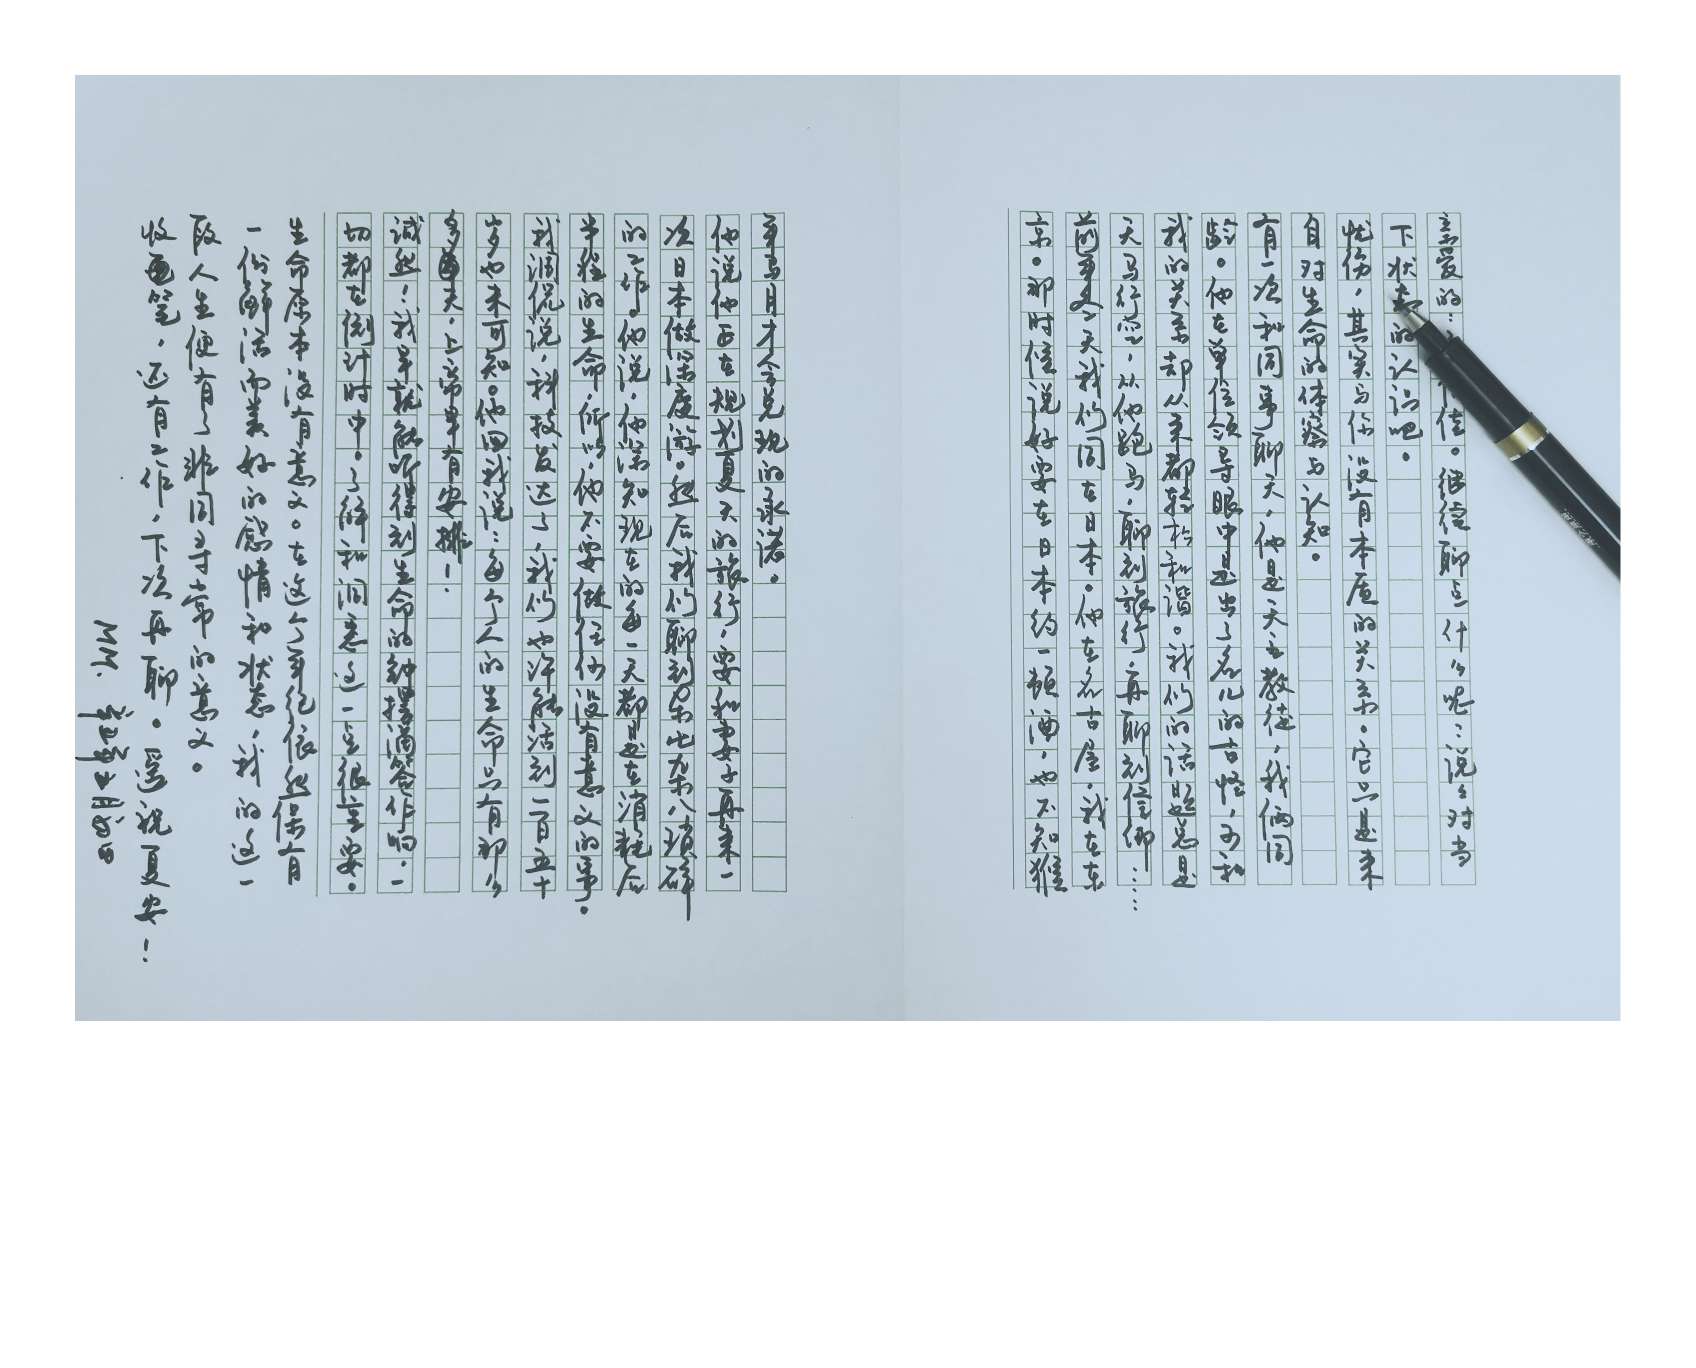 亲爱的：佳。继续聊点什么呢：说说对当
下状态的认识吧。
忧伤，其实与你没有本质的关系。它只是来
自对生命的体察与认知。
有一次和同事聊天，他是天主教徒，我俩同
龄。他在单位领导眼中是出了名儿的古怪，可和
我的关系却从来都轻松和谐。我们的话题总是
天马行空，从他跑马，聊到旅行，再聊到信仰……
前年夏天我们同在日本。他在名古屋，我在东
京。那时候说好要在日本约一顿酒，也不知猴
年马月才会兑现的承诺。
他说他正在规划夏天的旅行，要和妻子再来一
次日本做深度游。然后我们聊到乱七八糟琐碎
的工作。他说，他深知现在的每一天都是在消耗后
半程的生命，所以，他不要做任何没有意义的事。
我调侃说，科技发达了，我们也许能活到一百五十
岁也未可知。他回我说：每个人的生命只有那么
多天，上帝早有安排！
诚然！我早就能听得到生命的钟摆滴答作响，一
切都在倒计时中。了解和洞悉这一点很重要。
生命原本没有意义。在这个年纪依然保有
一份鲜活而美好的感情和状态，我的这一
段人生便有了非同寻常的意义。
收画笔，还有工作，下次再聊。遥祝夏安！
MM.